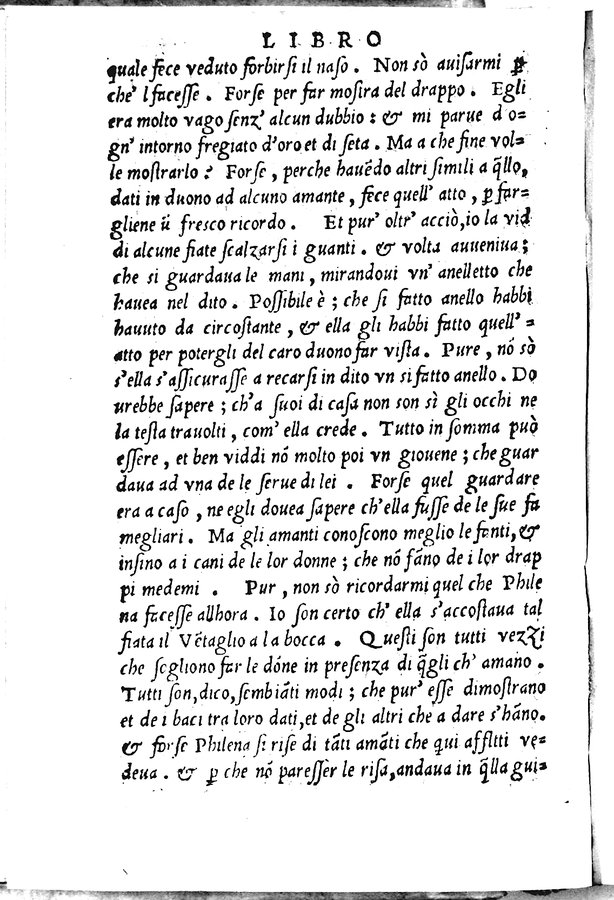 LIBRO
quale fece veduto forbirsi il naso. Non sò auisarmi ꝑ
che'l facesse. Forse per far mostra del drappo. Egli
era molto vago senz' alcun dubbio: & mi parue d o-
gn' intorno fregiato d'oro, et di seta. Ma a che fine vol-
le mostrarlo? Forse, perche hauẽdo altri simili a q̃llo,
dati in duono ad alcuno amante, fece quell' atto, ꝑ far-
gliene ũ fresco ricordo. Et pur' oltr' acciò, io la vid
di alcune fiate scalzarsi i guanti. & volta auueniua;
che si guardaua le mani, mirandoui vn' anelletto che
hauea nel dito. Possibile è; che si fatto anello habbi
hauuto da circostante, & ella gli habbi fatto quell' -
atto per potergli del caro duono far vista. Pure, nõ sò
s'ella s'assicurasse a recarsi in dito vn si fatto anello. Do
urebbe sapere; ch'a suoi di casa non son sì gli occhi ne
la testa trauolti, com' ella crede. Tutto in somma può
essere, et ben viddi nõ molto poi vn giouene; che guar
daua ad vna de le serue di lei. Forse quel guardare
era a caso, ne egli douea sapere ch'ella fusse de le sue fa
megliari. Ma gli amanti conoscono meglio le fanti, &
insino a i cani de le lor donne; che nõ fãno de i lor drap
pi medemi. Pur, non sò ricordarmi quel che Phile
na facesse allhora. Io son certo ch' ella s'accostaua tal
fiata il Vẽtaglio a la bocca. Questi son tutti vezzi
che sogliono far le dõne in presenza di q̃gli ch' amano.
Tutti son, dico, sembiãti modi; che pur' esse dimostrano
et de i baci tra loro dati, et de gli altri che a dare s'hãno.
& forse Philena si rise di tãti amãti che qui afflitti ve-
deua. & ꝑ che nõ paresser le risa, andaua in q̃lla gui-